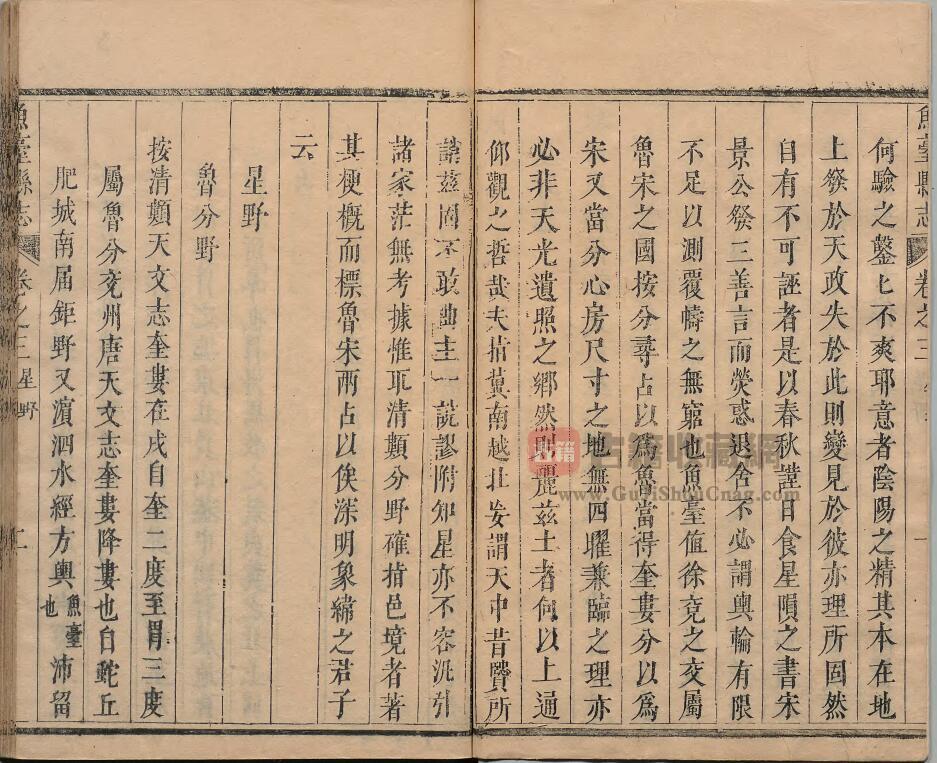 魚臺縣志 卷之三 一
何驗之鑿鑿不爽耶意者陰陽之精其本在地
上發於天政失於此則變見於彼亦理所固然
自有不可誣者是以春秋謹日食星隕之書宋
景公發三善言而熒惑退舍不必謂輿輪有限
不足以測覆幬之無窮也魚臺值徐兗之交屬
魯宋之國按分尋占以爲魯當得奎婁分以爲
宋又當分心房尺寸之地無四曜兼臨之理亦
必非天光遺照之鄉然則麗茲土者何以上通
仰觀之哲哉夫指冀南越北妄謂天中昔賢所
誚茲固不敢曲主一說謬附知星亦不容泥引
諸家茫無考據惟取清類分野確指邑境者著
其梗概而標魯宋兩占以俟深明象緯之君子
云
星野
魯分野
按清類天文志奎婁在戌自奎二度至胃三度
屬魯分兗州唐天文志奎婁降婁也自蛇丘
肥城南届鉅野又濵泗水經方輿魚臺也沛留
魚臺縣志 卷之三 星野 二
收籍
古籍收藏網
www.GujiShouCang.com